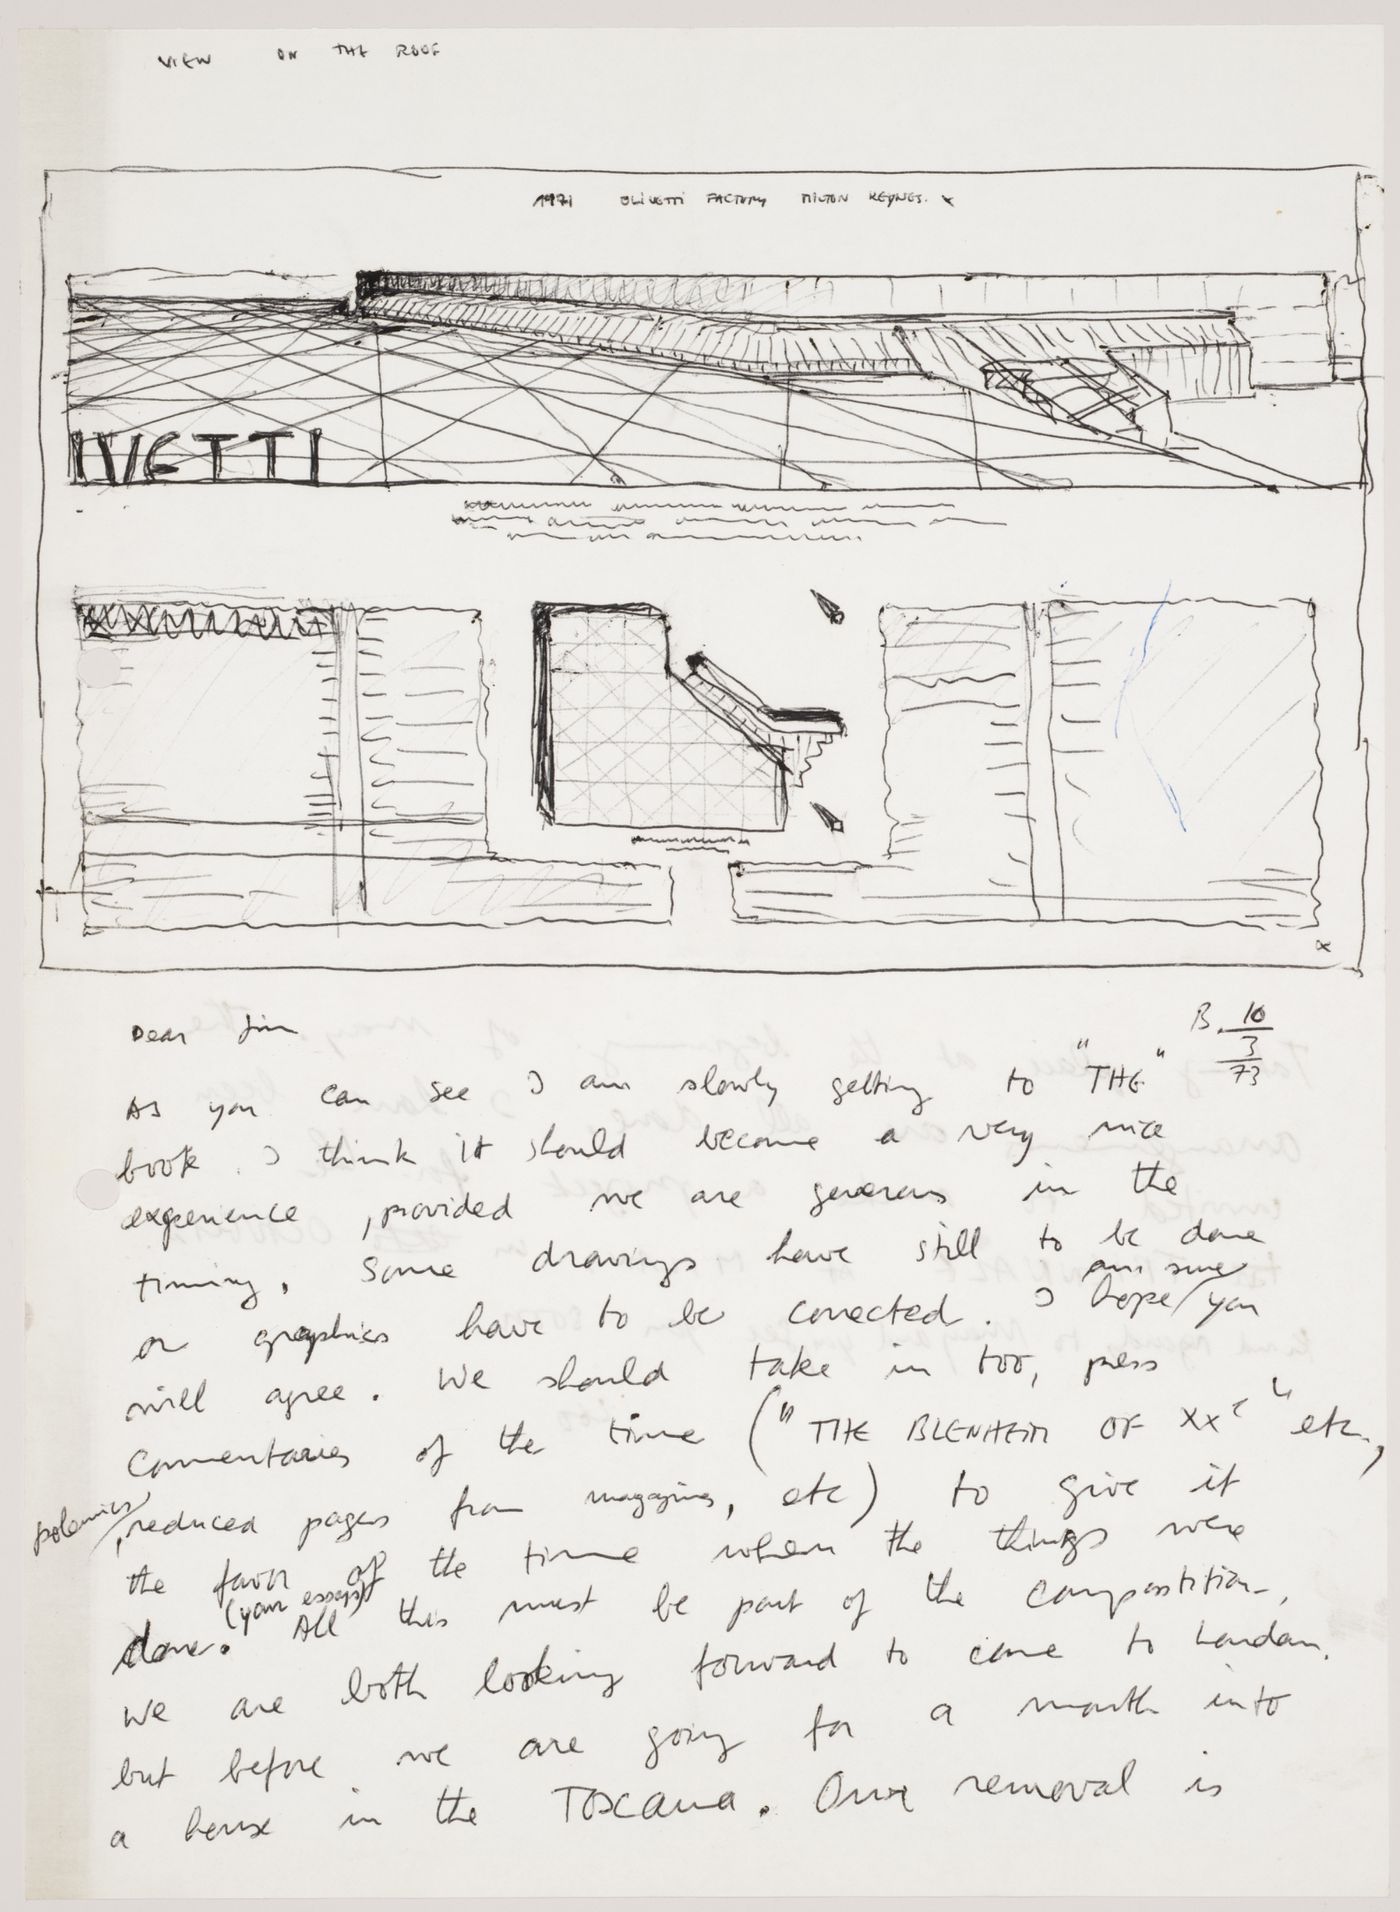 VIEW ON THE ROOF
1971 OLIVETTI FACTORY MILTON KEYNES. x
IVETTI
x
Dear Jim
B. 10
3
73
As you can see I am slowly getting to "THE"
book. I think it should become a very nice
experience, provided we are generous in the
timing. Some drawings have still to be done
or graphics have to be corrected. I hope/am sure you
will agree. We should take in too, press
commentaries of the time ("THE BLENHEIM OF XXc" etc.,
polemics, reduced pages from magazines, etc) to give it
the favor of the time when the things were
done. (your essays) All this must be part of the compostition.
We are both looking forward to come to London.
but before we are going for a month into
a house in the Toscana. Our removal is